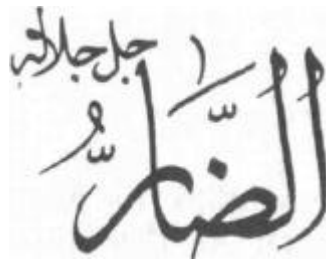 الضَّارُّ
جل جلاله